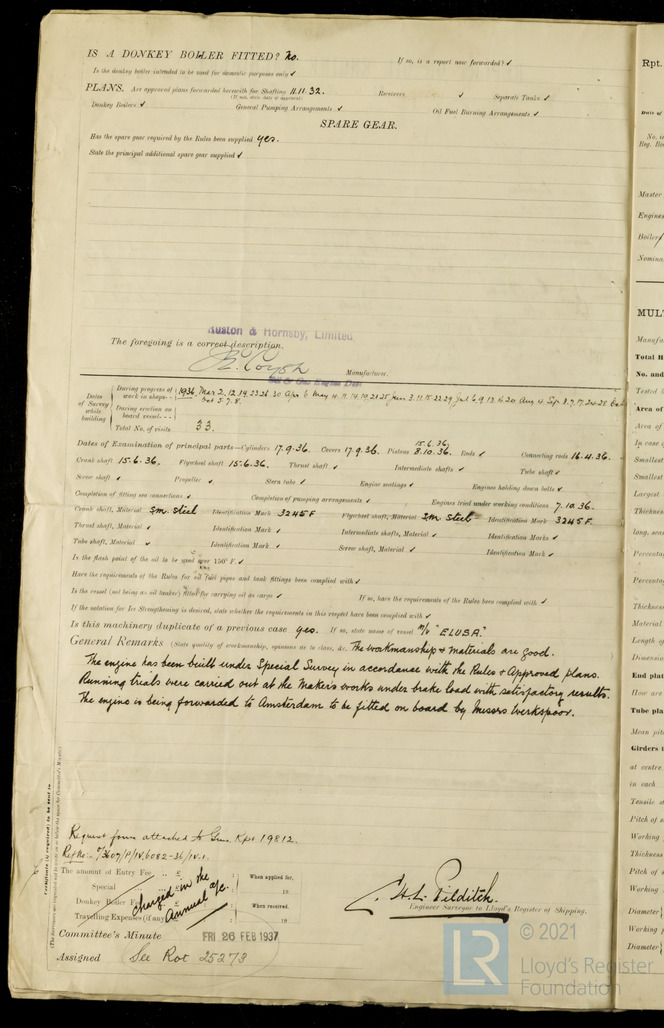 IS A DONKEY BOILER FITTED? No. If so, is a report now forwarded? ✓
Is the donkey boiler intended to be used for domestic purposes only ✓
PLANS. Are approved plans forwarded herewith for Shafting 11.11.32. Receivers ✓ Separate Tanks ✓
(If not, state date of approval)
Donkey Boilers ✓ General Pumping Arrangements ✓ Oil Fuel Burning Arrangements ✓
SPARE GEAR.
Has the spare gear required by the Rules been supplied yes.
State the principal additional spare gear supplied ✓
Ruston & Hornsby, Limited
The foregoing is a correct description,
Manufacturer.
Dates of Survey while building
During progress of work in shops - - 1936. Mar 2. 12. 19. 23. 26. 30
During erection on board vessel - - -
Total No. of visits 33.
Dates of Examination of principal parts—Cylinders 17.9.36. Covers 17.9.36. Pistons 15.6.36, 8.10.36. Rods ✓ Connecting rods 16.4.36.
Crank shaft 15.6.36. Flywheel shaft 15.6.36. Thrust shaft ✓ Intermediate shafts ✓ Tube shaft ✓
Screw shaft ✓ Propeller ✓ Stern tube ✓ Engine seatings ✓ Engines holding down bolts ✓
Completion of fitting sea connections ✓ Completion of pumping arrangements ✓ Engines tried under working conditions 7.10.36.
Crank shaft, Material Sm. Steel Identification Mark 3245 F Flywheel shaft, Material Sm Steel Identification Mark 3245 F.
Thrust shaft, Material ✓ Identification Mark ✓ Intermediate shafts, Material ✓ Identification Marks ✓
Tube shaft, Material ✓ Identification Mark ✓ Screw shaft, Material ✓ Identification Mark ✓
Is the flash point of the oil to be used over 150° F. ✓
Have the requirements of the Rules for oil fuel pipes and tank fittings been complied with ✓
Is the vessel (not being an oil tanker) fitted for carrying oil as cargo ✓ If so, have the requirements of the Rules been complied with ✓
If the notation for Ice Strengthening is desired, state whether the requirements in this respect have been complied with ✓
Is this machinery duplicate of a previous case yes. If so, state name of vessel M/V "ELUSA."
General Remarks (State quality of workmanship, opinions as to class, &c. The workmanship & materials are good.
The engine has been built under Special Survey in accordance with the Rules & Approved plans.
Running trials were carried out at the Makers works under brake load with satisfactory results.
The engine is being forwarded to Amsterdam to be fitted on board by Messrs Werkspoor.
Request form attached to Gms. Rpt. 19812.
The amount of Entry Fee .. £ : : When applied for,
Special .. £ : : 19
Donkey Boiler Fee .. £ : : When received,
Travelling Expenses (if any) £ : : 19
Charged in the Annual a/c.
H. L. Pilditch.
Engineer Surveyor to Lloyd's Register of Shipping.
Committee's Minute FRI 26 FEB 1937
Assigned See Rot 25273
© 2021
LR
Lloyd's Register
Foundation
Rpt.
Date of
No. in
Reg. Bo
Master
Engines
Boiler
Nomina
MUL
Manufa
Total H
No. and
Tested
Area of
Area of
In case o
Smallest
Smallest
Largest
Thickness
long. sea
Percenta
Percenta
Thickness
Material
Length o
Dimensio
End plat
How are
Tube pla
Mean pit
Girders t
at centre
in each
Tensile st
Pitch of s
Working
Thickness
Pitch of s
Working
Diameter
Working p
Diameter